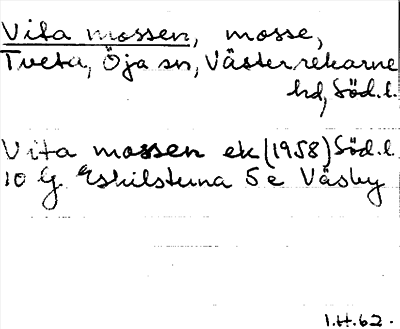 Vita mossen, mosse,
Tveta, Öja sn, Västerrekarne
hd, Söd.l.
Vita mossen ek (1958) Söd.l.
10 G Eskilstuna 5 e Väsby
I.H.62.